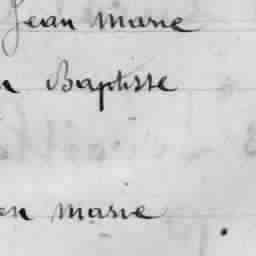 Jean Marie
n Baptiste
en Marie